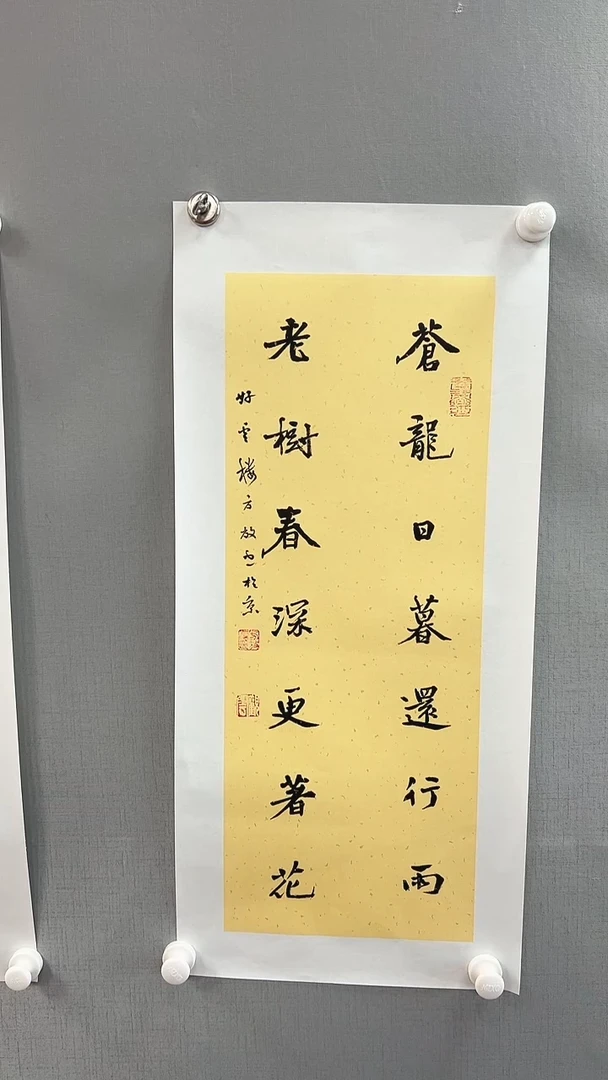 蒼龍日暮還行雨
老樹春深更著花
好雲樓方放書於京